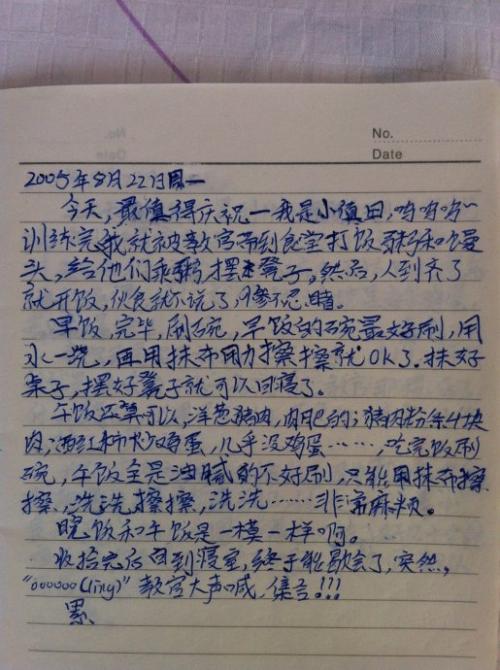 No.
Date
2005年8月22日周一
今天,最值得庆祝一我是小值日,呜呜呜~
训练完我就被教官带到食堂打饭粥和馒
头,给他们乘粥,摆凳子。然后,人到齐了
就开饭,伙食就不说了,惨不忍睹。
早饭,完毕,刷碗,早饭的碗最好刷,用
水一烧,再用抹布用力擦擦就OK了.抹好
桌子,摆好凳子就可以回寝了。
午饭还算可以,洋葱猪肉,肉肥的;猪肉粉条4块
肉;西红柿炒鸡蛋,几乎没鸡蛋……,吃完饭刷
碗,午饭全是油腻的不好刷,只能用抹布擦
擦、洗洗擦擦,洗洗……非常麻烦。
晚饭和午饭是一模一样啊。
收拾完后回到寝室,终于能歇会了,突然,
"oooooo(ling)"教官大声喊,集合!!!
累